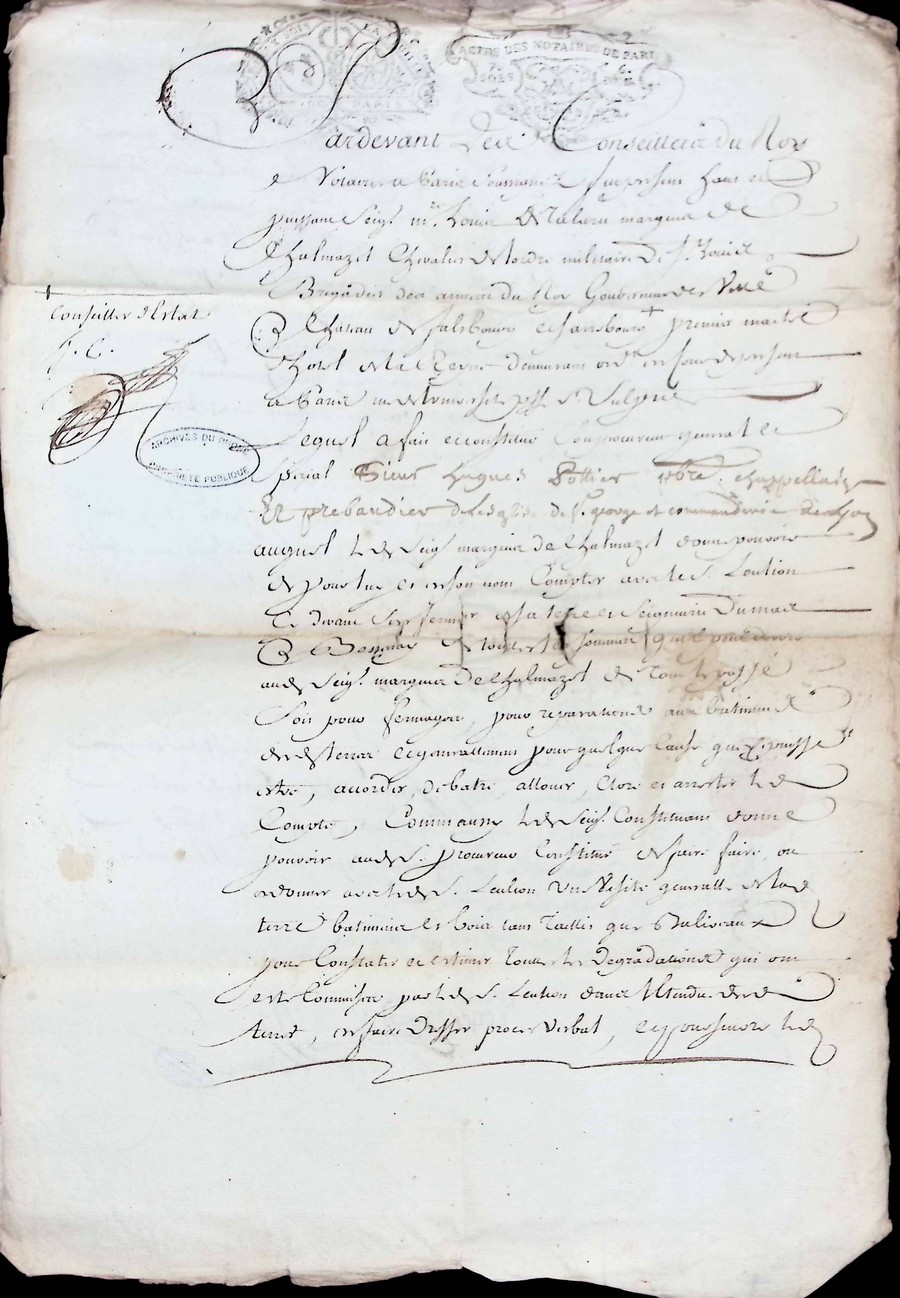 ACTES DES NOTAIRES DE PARIS
Pardevant Les Conseillers du Roy
Notaires a Paris soussignez fut present haut et
puissant Seigr. mre. Louis de talaru marquis de
Chalmazel Chevalier de lordre militaire de St. Louis
Brigadier des armées du Roy Gouverneur des Ville
& Chateau de falsbourg et sarrebourg + premier maitre
dhotel de la Reyne demeurant
a Paris psse. St. Sulpice
Conseiller d'Estat
ARCHIVES DU RHÔNE
PROPRIETE PUBLIQUE
Lequel a fait et constitué son procureur general et
special Sieur hugues Pottier pbre. chappellain
Et prebandier de leglise de St. george et commanderie de Lyon
auquel led. Seigr. marquis de Chalmazel donne pouvoir
de pour luy et en son nom Compter avec le S. Leution
Cy devant Son fermier de la terre et Seigneurie Dumas
& de touttes les sommes quil peut devoir
aud. Seigr. marquis de Chalmazel de tout le passé
Soit pour fermages, pour reparations aux batiments
desd. terres et generallement pour quelque Cause que ce puisse
estre, accorder, debatre allouer, Clore et arrester led.
Compte, Comme aussy led. Seigr. Constituant donne
pouvoir aud. S. procureur Constitué de faire faire, ou
ordonner avec led. S. Leution une Visite generalle de lad.
terre batiments et bois tant Taillis que Baliveaux
pour Constater et estimer Toutes les Degradations qui ont
esté Commises par led. S. Leution dans l'Etendue desd.
terres, en faire Dresser procez verbal, et poursuivre led.